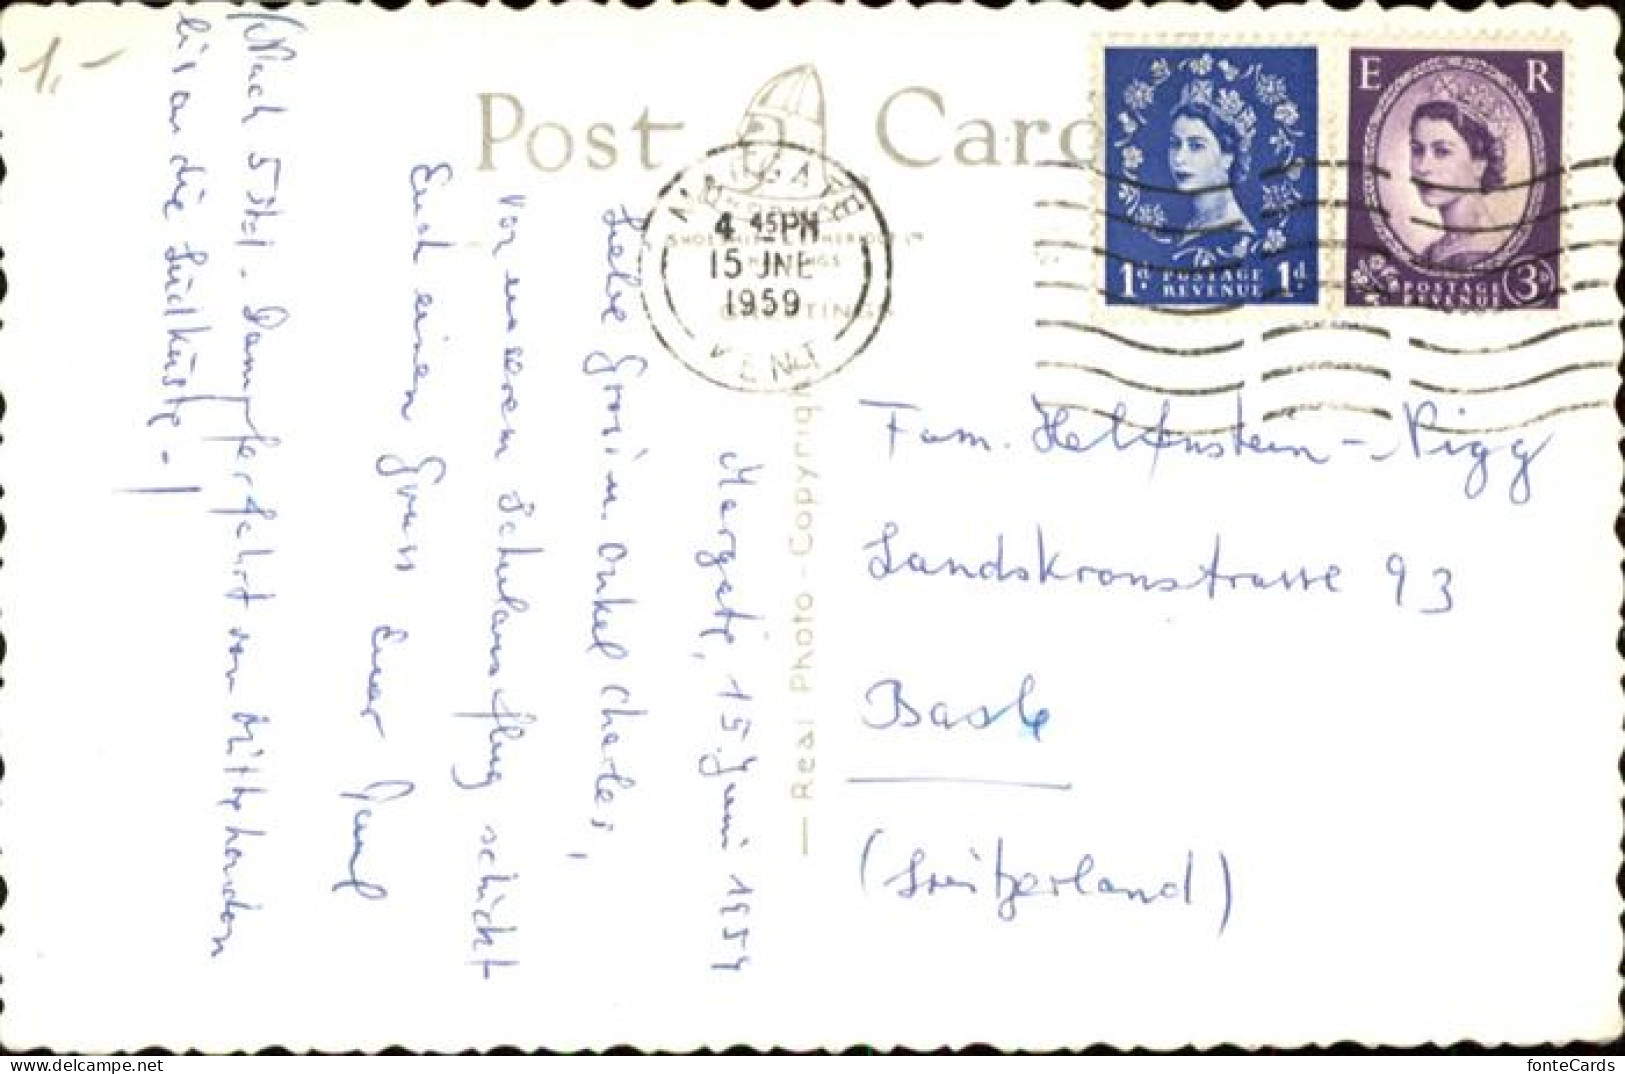 1.-
Post Card
MARGATE
BROADSTAIRS
4 45 PM
15 JNE
1959
KENT
SHOESMITH & ETHERIDGE LTD
HASTINGS
GREETINGS
E R
1d POSTAGE 1d
REVENUE
POSTAGE 3d
REVENUE
— Real Photo - Copyright
Margate, 15. Juni 1959
Liebe Grosi u. Onkel Charles,
Von unserem Schulausflug schickt
Euch einen Gruss
Euer Paul
(Nach 5 Std. Dampferfahrt von Mitte London
bis an die Südküste.-)
Fam. Helfenstein-Nigg
Landskronstrasse 93
Basle
(Switzerland)
fonteCards